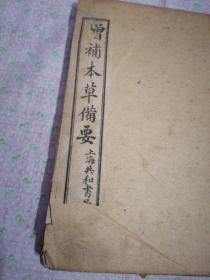 曾補本草備要
上海共和書局